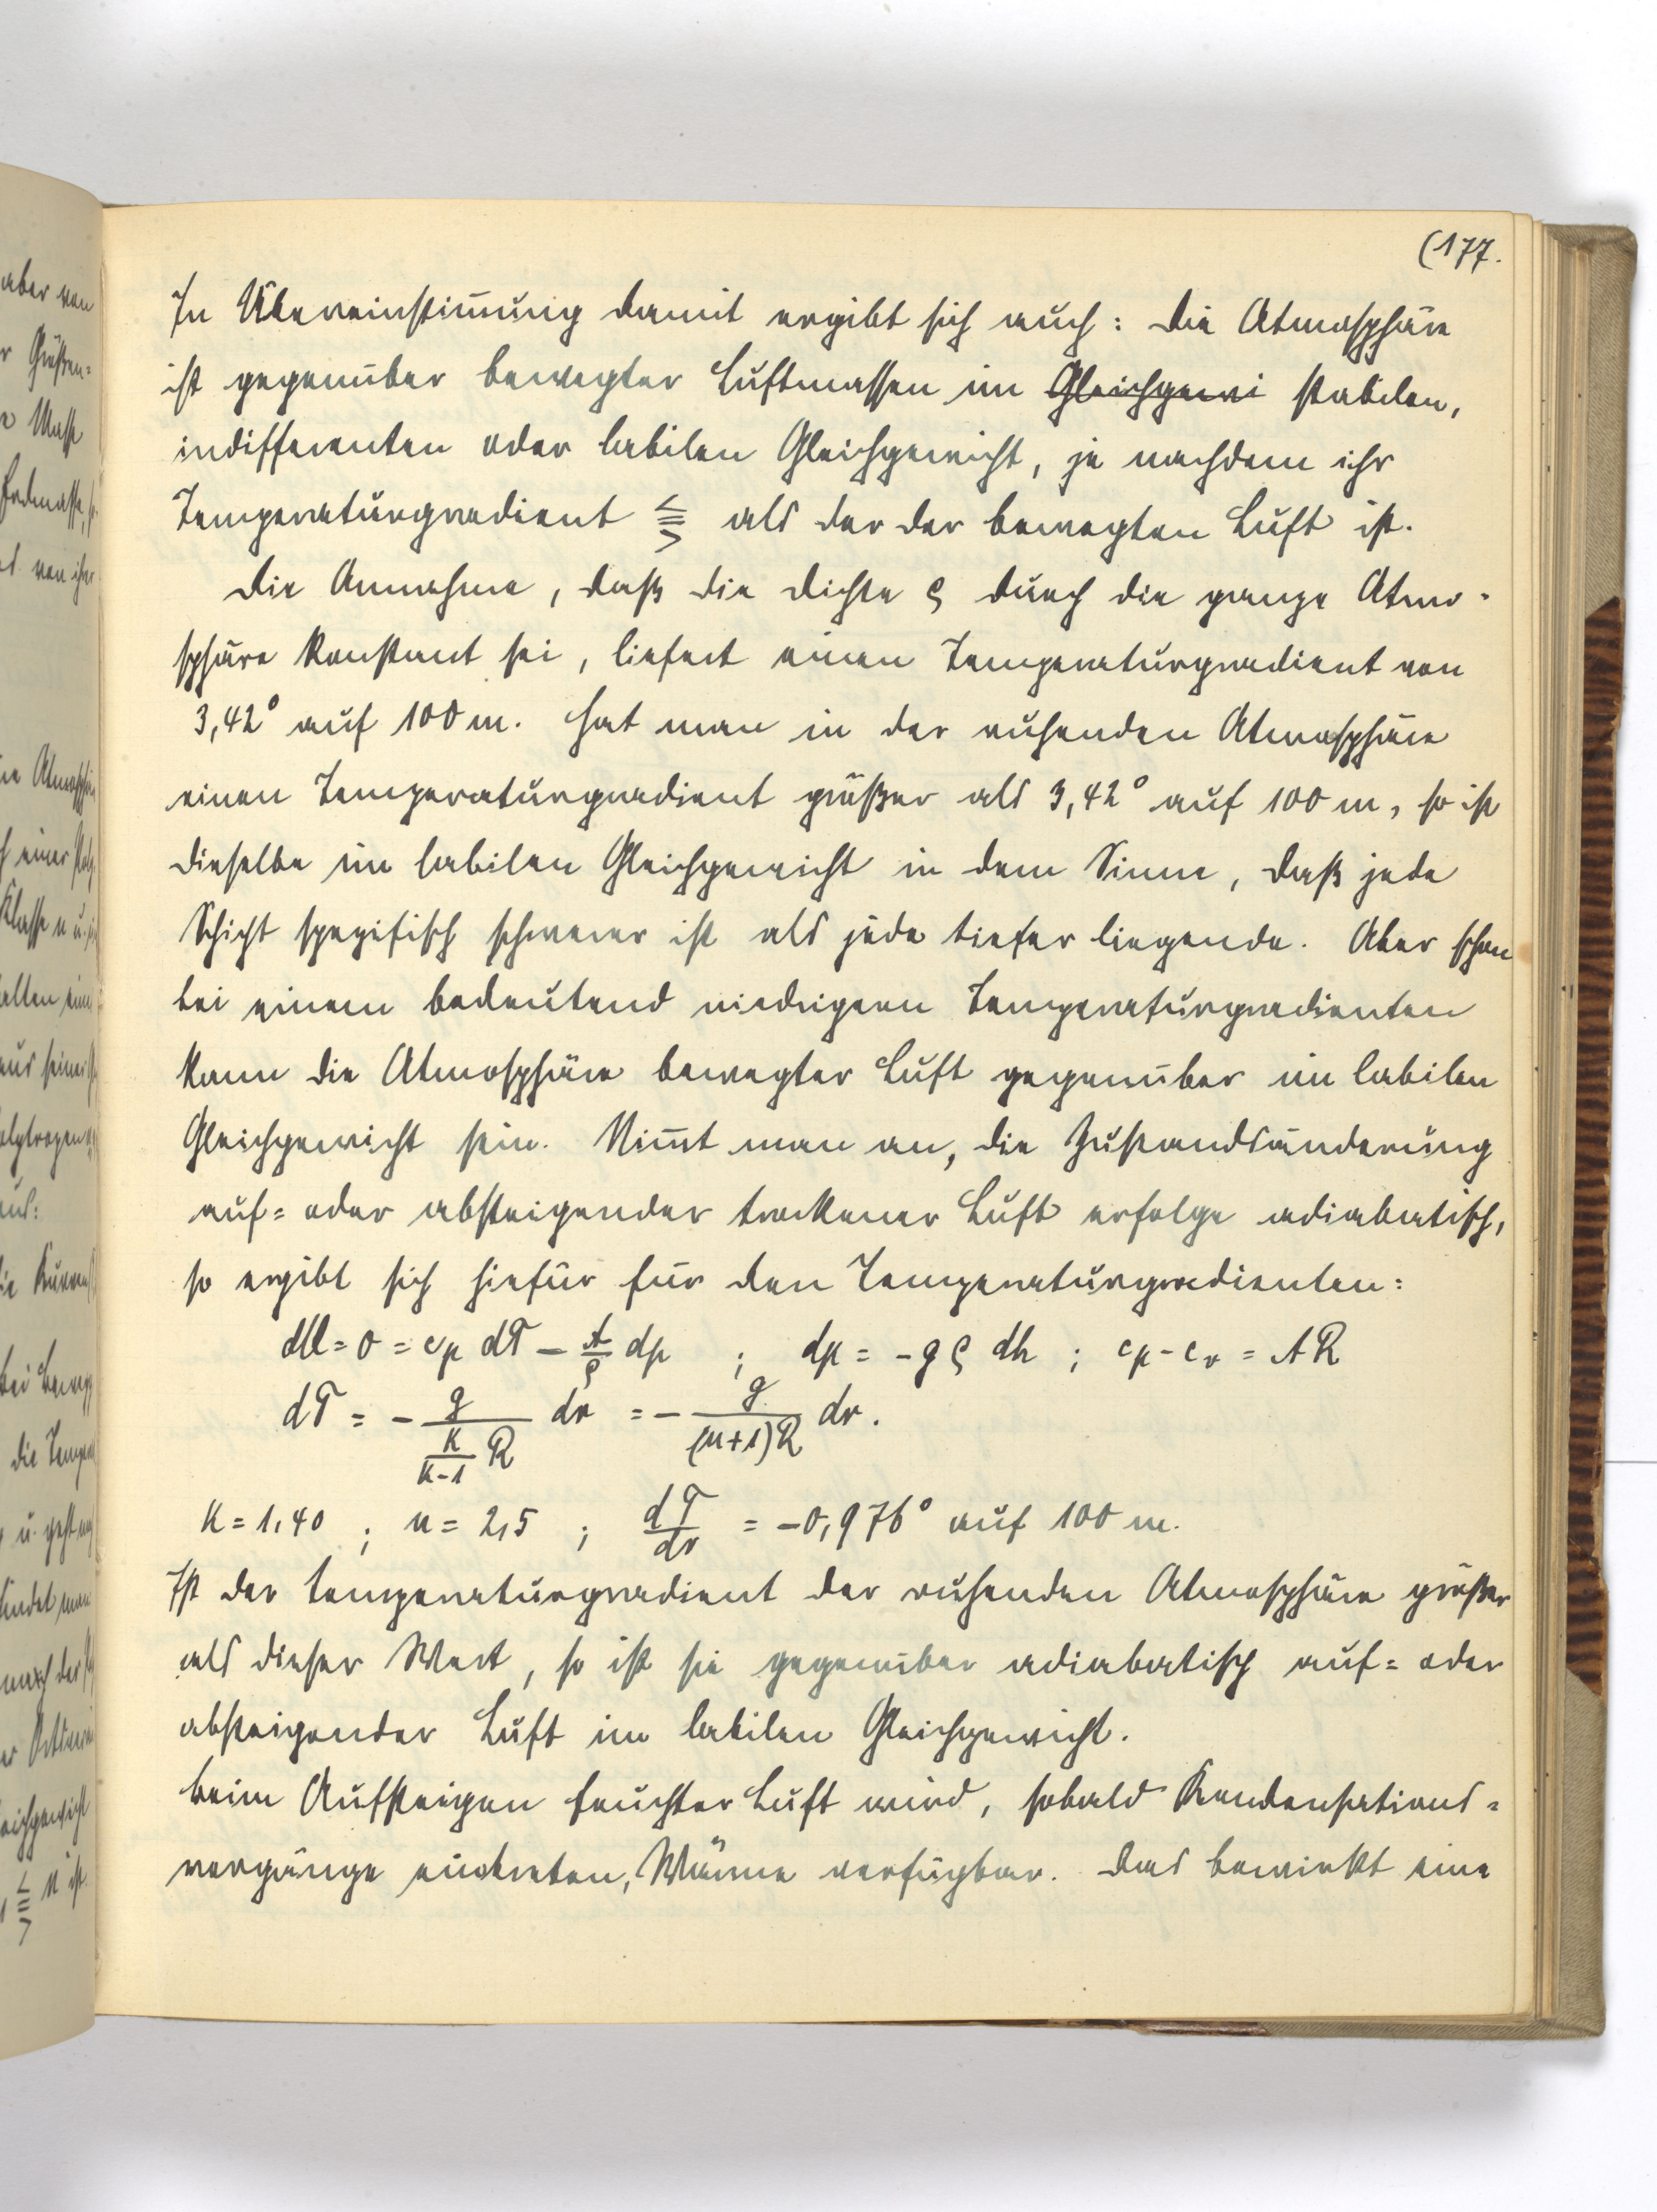 (177.
In Übereinstim̄ung damit ergibt sich auch: Die Atmosphäre
ist gegenüber bewegter Luftmassen im ~~Gleichgewi~~ stabilen,
indifferenten oder labilen Gleichgewicht, je nachdem ihr
Temperaturgradient ⪋ als der der bewegten Luft ist.
Die Annahme, daß die Dichte ρ durch die ganze Atmo-
sphäre konstant sei, liefert einen Temperaturgradient von
3,42° auf 100 m. Hat man in der ruhenden Atmosphäre
einen Temperaturgradient größer als 3,42° auf 100 m, so ist
dieselbe im labilen Gleichgewicht in dem Sinne, daß jede
Schicht spezifisch schwerer ist als jede tiefer liegende. Aber schon
bei einem bedeutend niedrigern Temperaturgradienten
kann die Atmosphäre bewegter Luft gegenüber im labilen
Gleichgewicht sein. Nim̄t man an, die Zustandsänderung
auf= oder absteigender trockener Luft erfolge adiabatisch,
so ergibt sich hiefür für den Temperaturgradienten:
dU = 0 = cp dT − A/ρ dp ; dp = −gρ dh ; cp − cv = AR
dT = − g/(K/(K−1) R) dr = − g/((n+1)R) dr.
K = 1,40 ; n = 2,5 ; dT/dr = −0,976° auf 100 m.
Ist der Temperaturgradient der ruhenden Atmosphäre größer
als dieser Wert, so ist sie gegenüber adiabatisch auf= oder
absteigender Luft im labilen Gleichgewicht.
Beim Aufsteigen feuchter Luft wird, sobald Kondensations=
vorgänge eintreten, Wärme verfügbar. Das bewirkt eine